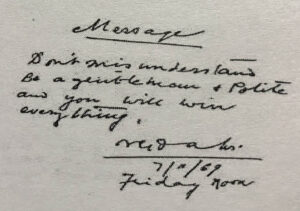 Message
Don't misunderstand
Be a gentleman & Polite
and you will win
everything.
7/11/69
Friday Noon